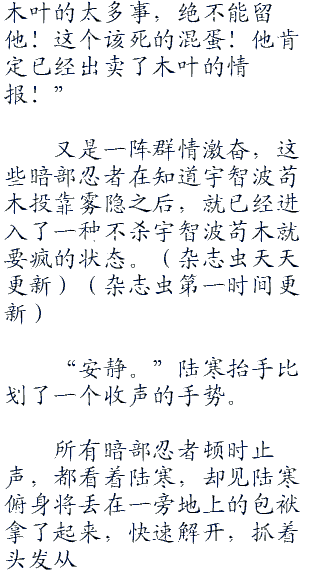 木叶的太多事，绝不能留
他！这个该死的混蛋！他肯
定已经出卖了木叶的情
报！”
又是一阵群情激奋，这
些暗部忍者在知道宇智波苟
木投靠雾隐之后，就已经进
入了一种不杀宇智波苟木就
要疯的状态。（杂志虫天天
更新）（杂志虫第一时间更
新）
“安静。”陆寒抬手比
划了一个收声的手势。
所有暗部忍者顿时止
声，都看着陆寒，却见陆寒
俯身将丢在一旁地上的包袱
拿了起来，快速解开，抓着
头发从